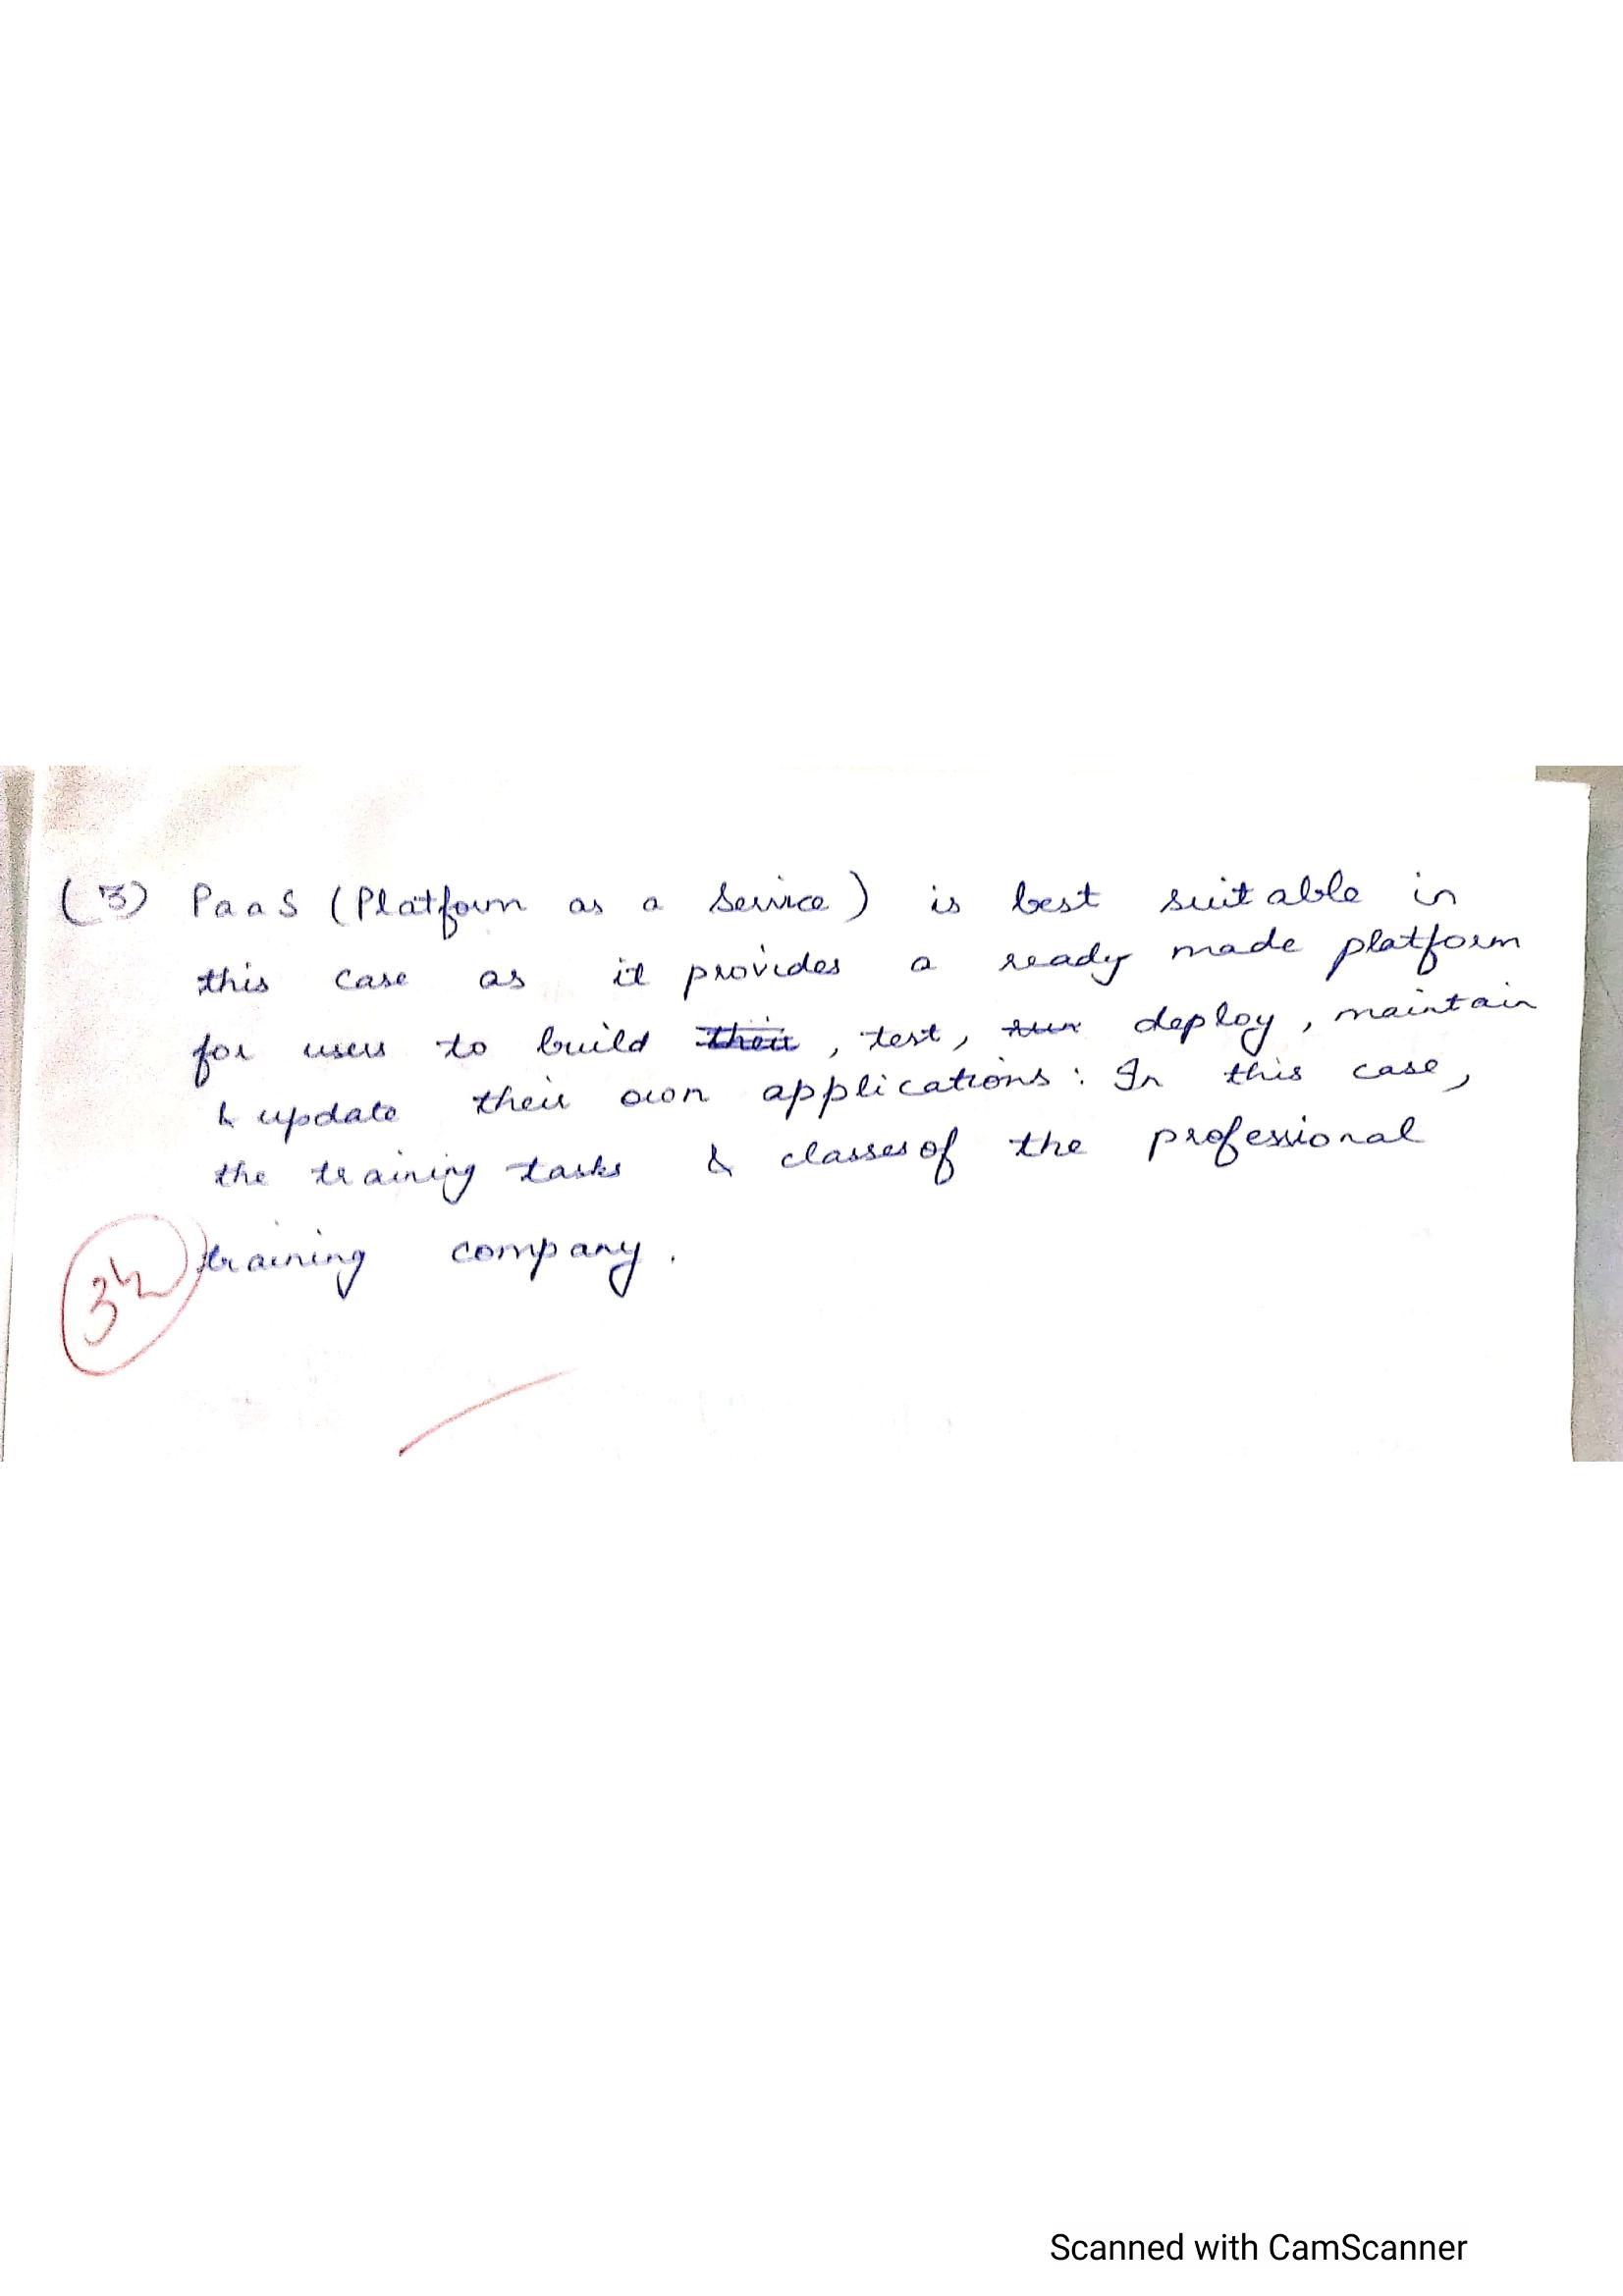 (3) PaaS (Platform as a Service) is best suitable in
this case as it provides a ready made platform
for users to build their, test, run deploy, maintain
& update their own applications. In this case,
the training tasks & classes of the professional
training company.
3½
Scanned with CamScanner